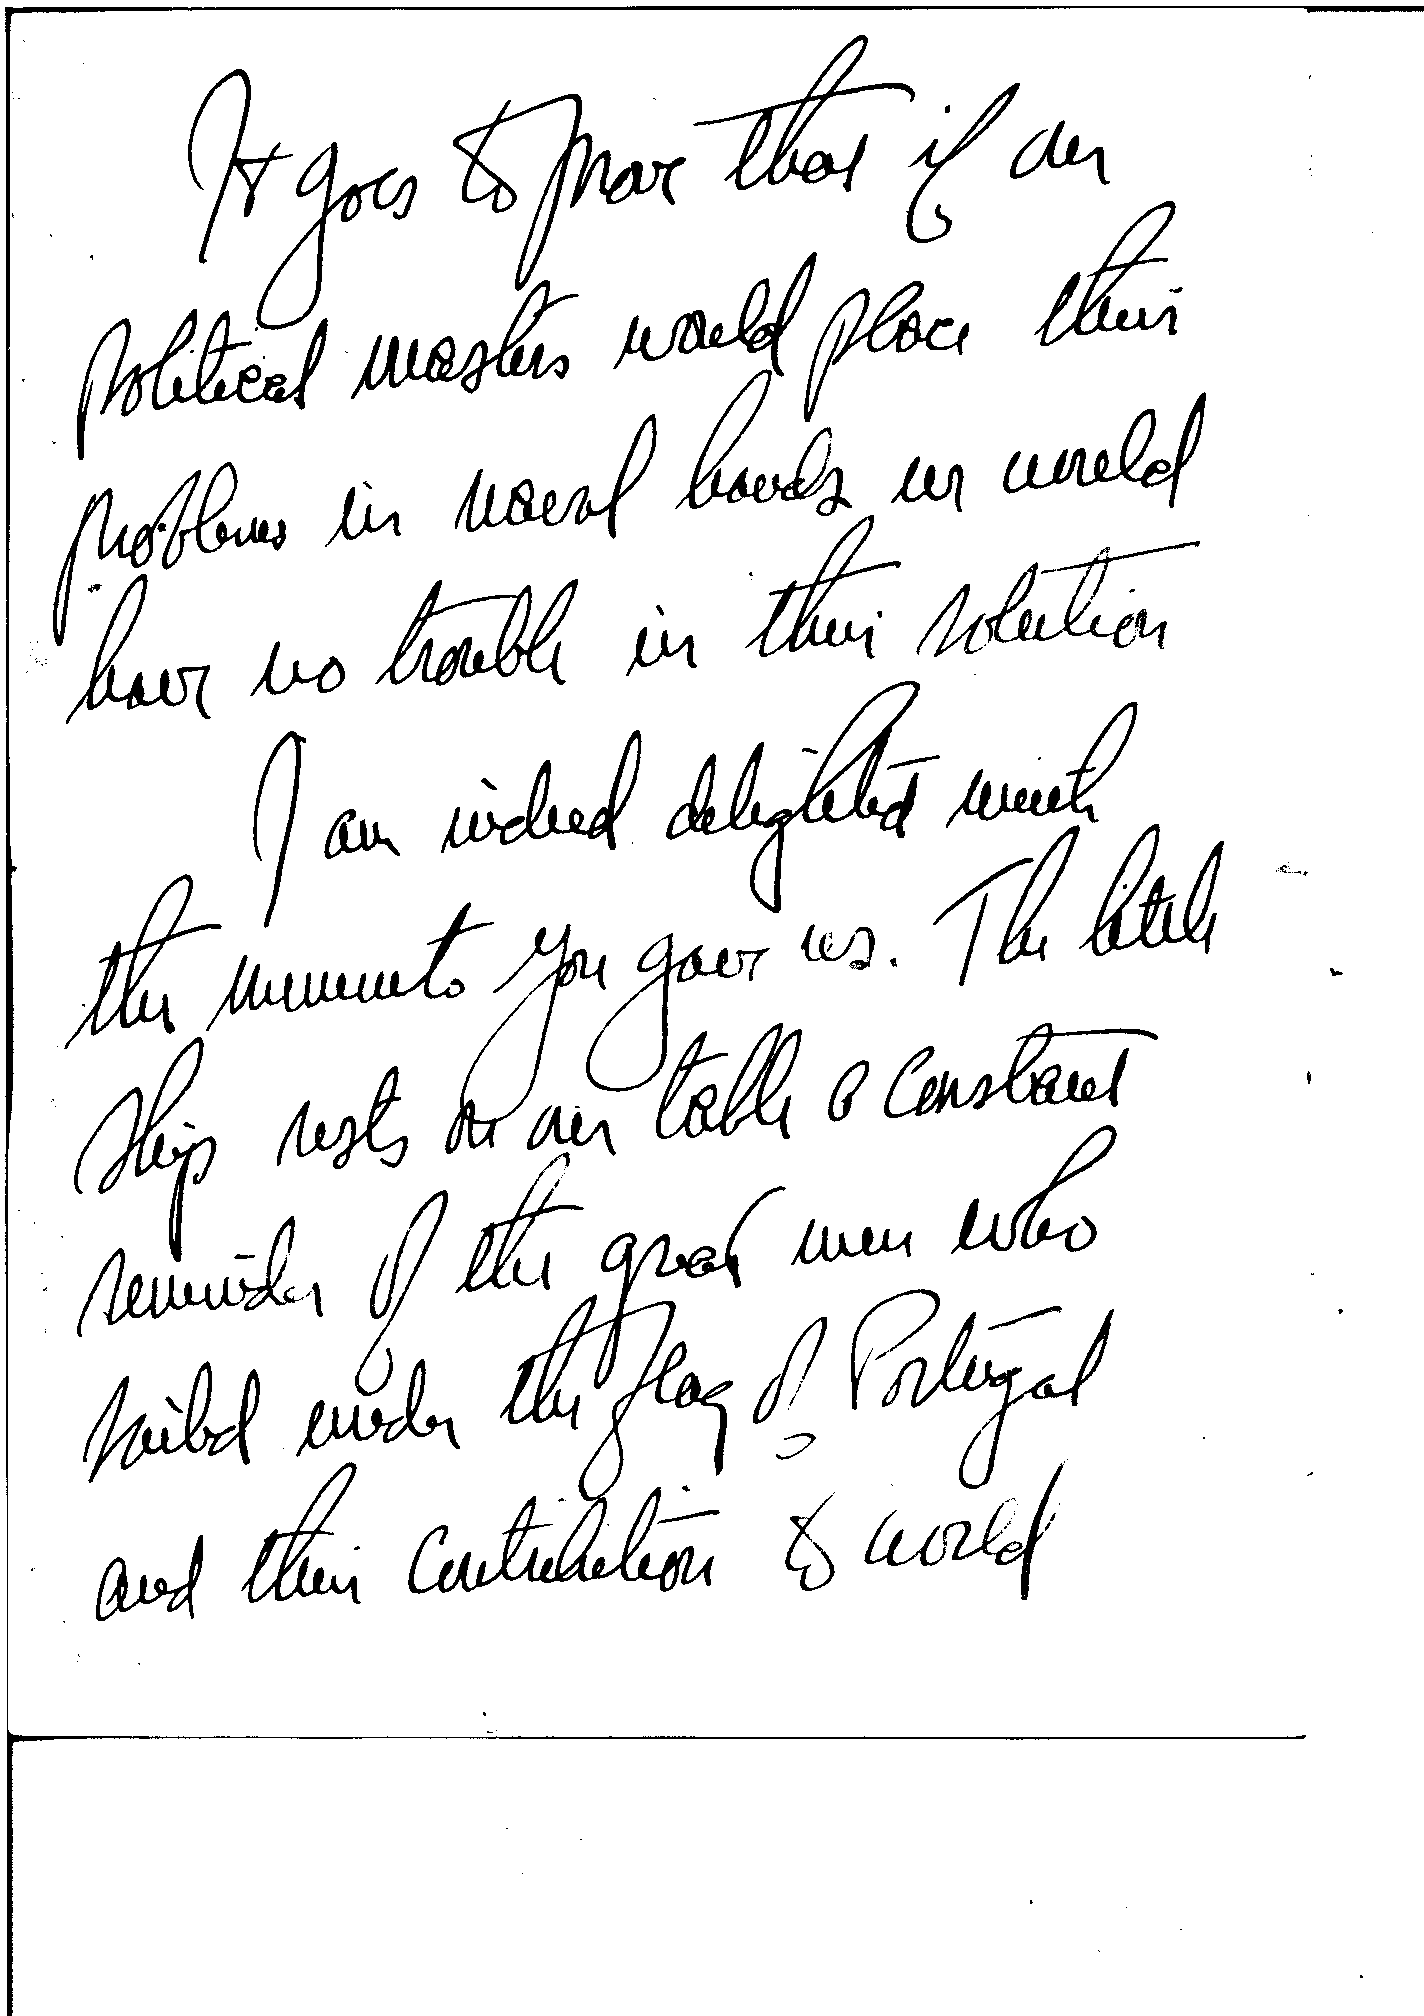 It goes to prove that if our
political masters would place their
problems in naval hands we would
have no trouble in their solution
I am indeed delighted with
the memento you gave us. The little
ship rests on our table a constant
reminder of the great men who
sailed under the flag of Portugal
and their contribution to world